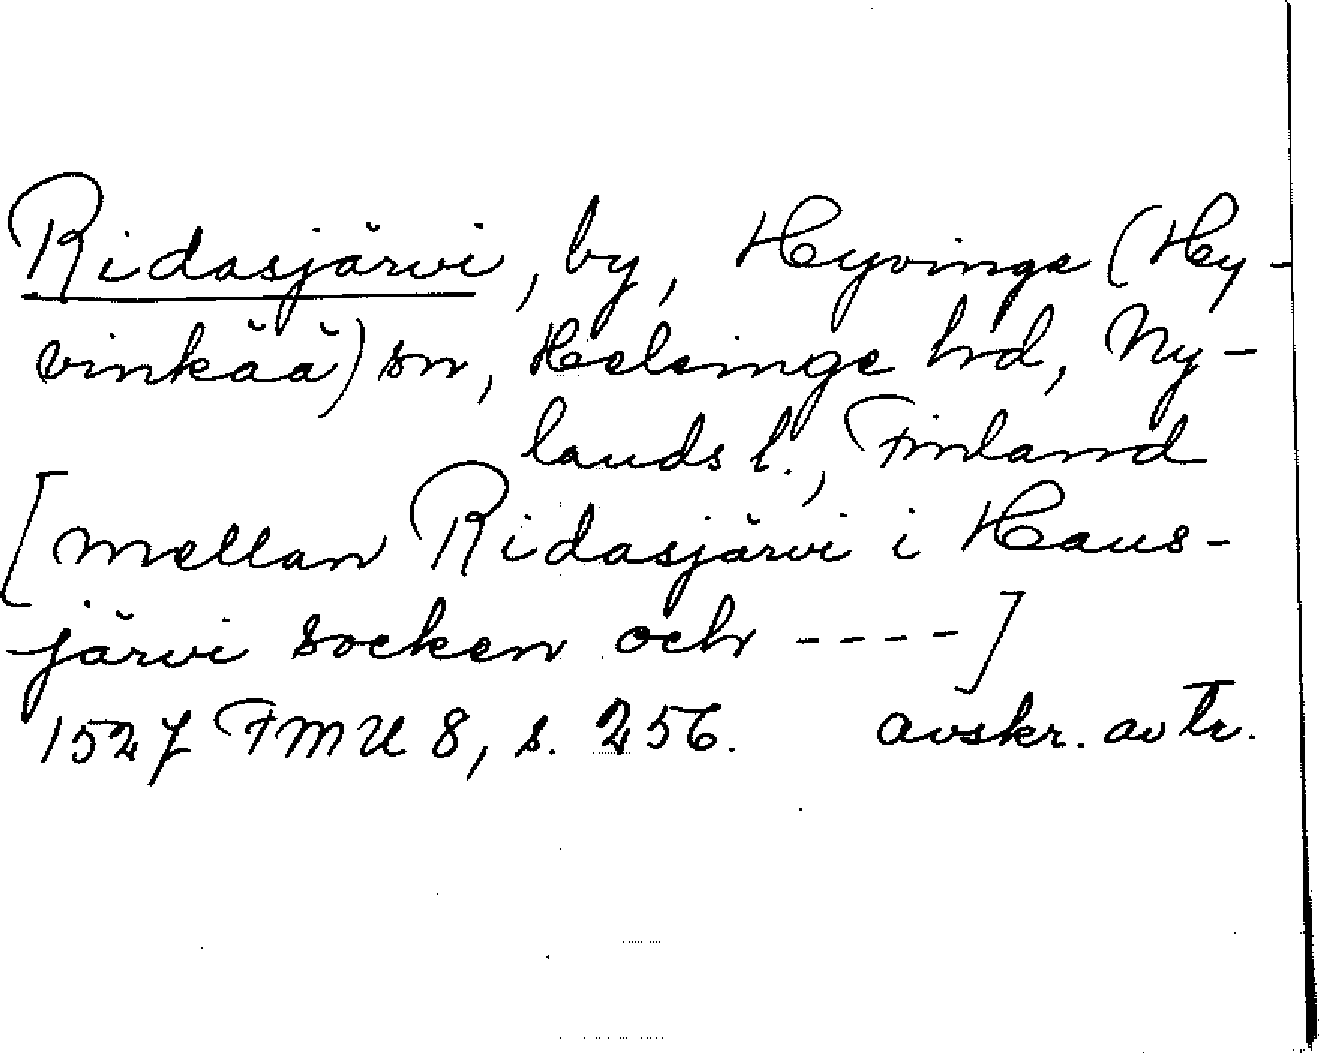 Ridasjärvi, by, Hyvinge (Hy-
vinkää) sn, Helsinge hrd, Ny-
lands l., Finland
[mellan Ridasjärvi i Haus-
järvi socken och ----]
1527 FMU 8, s. 256. avskr. av tr.